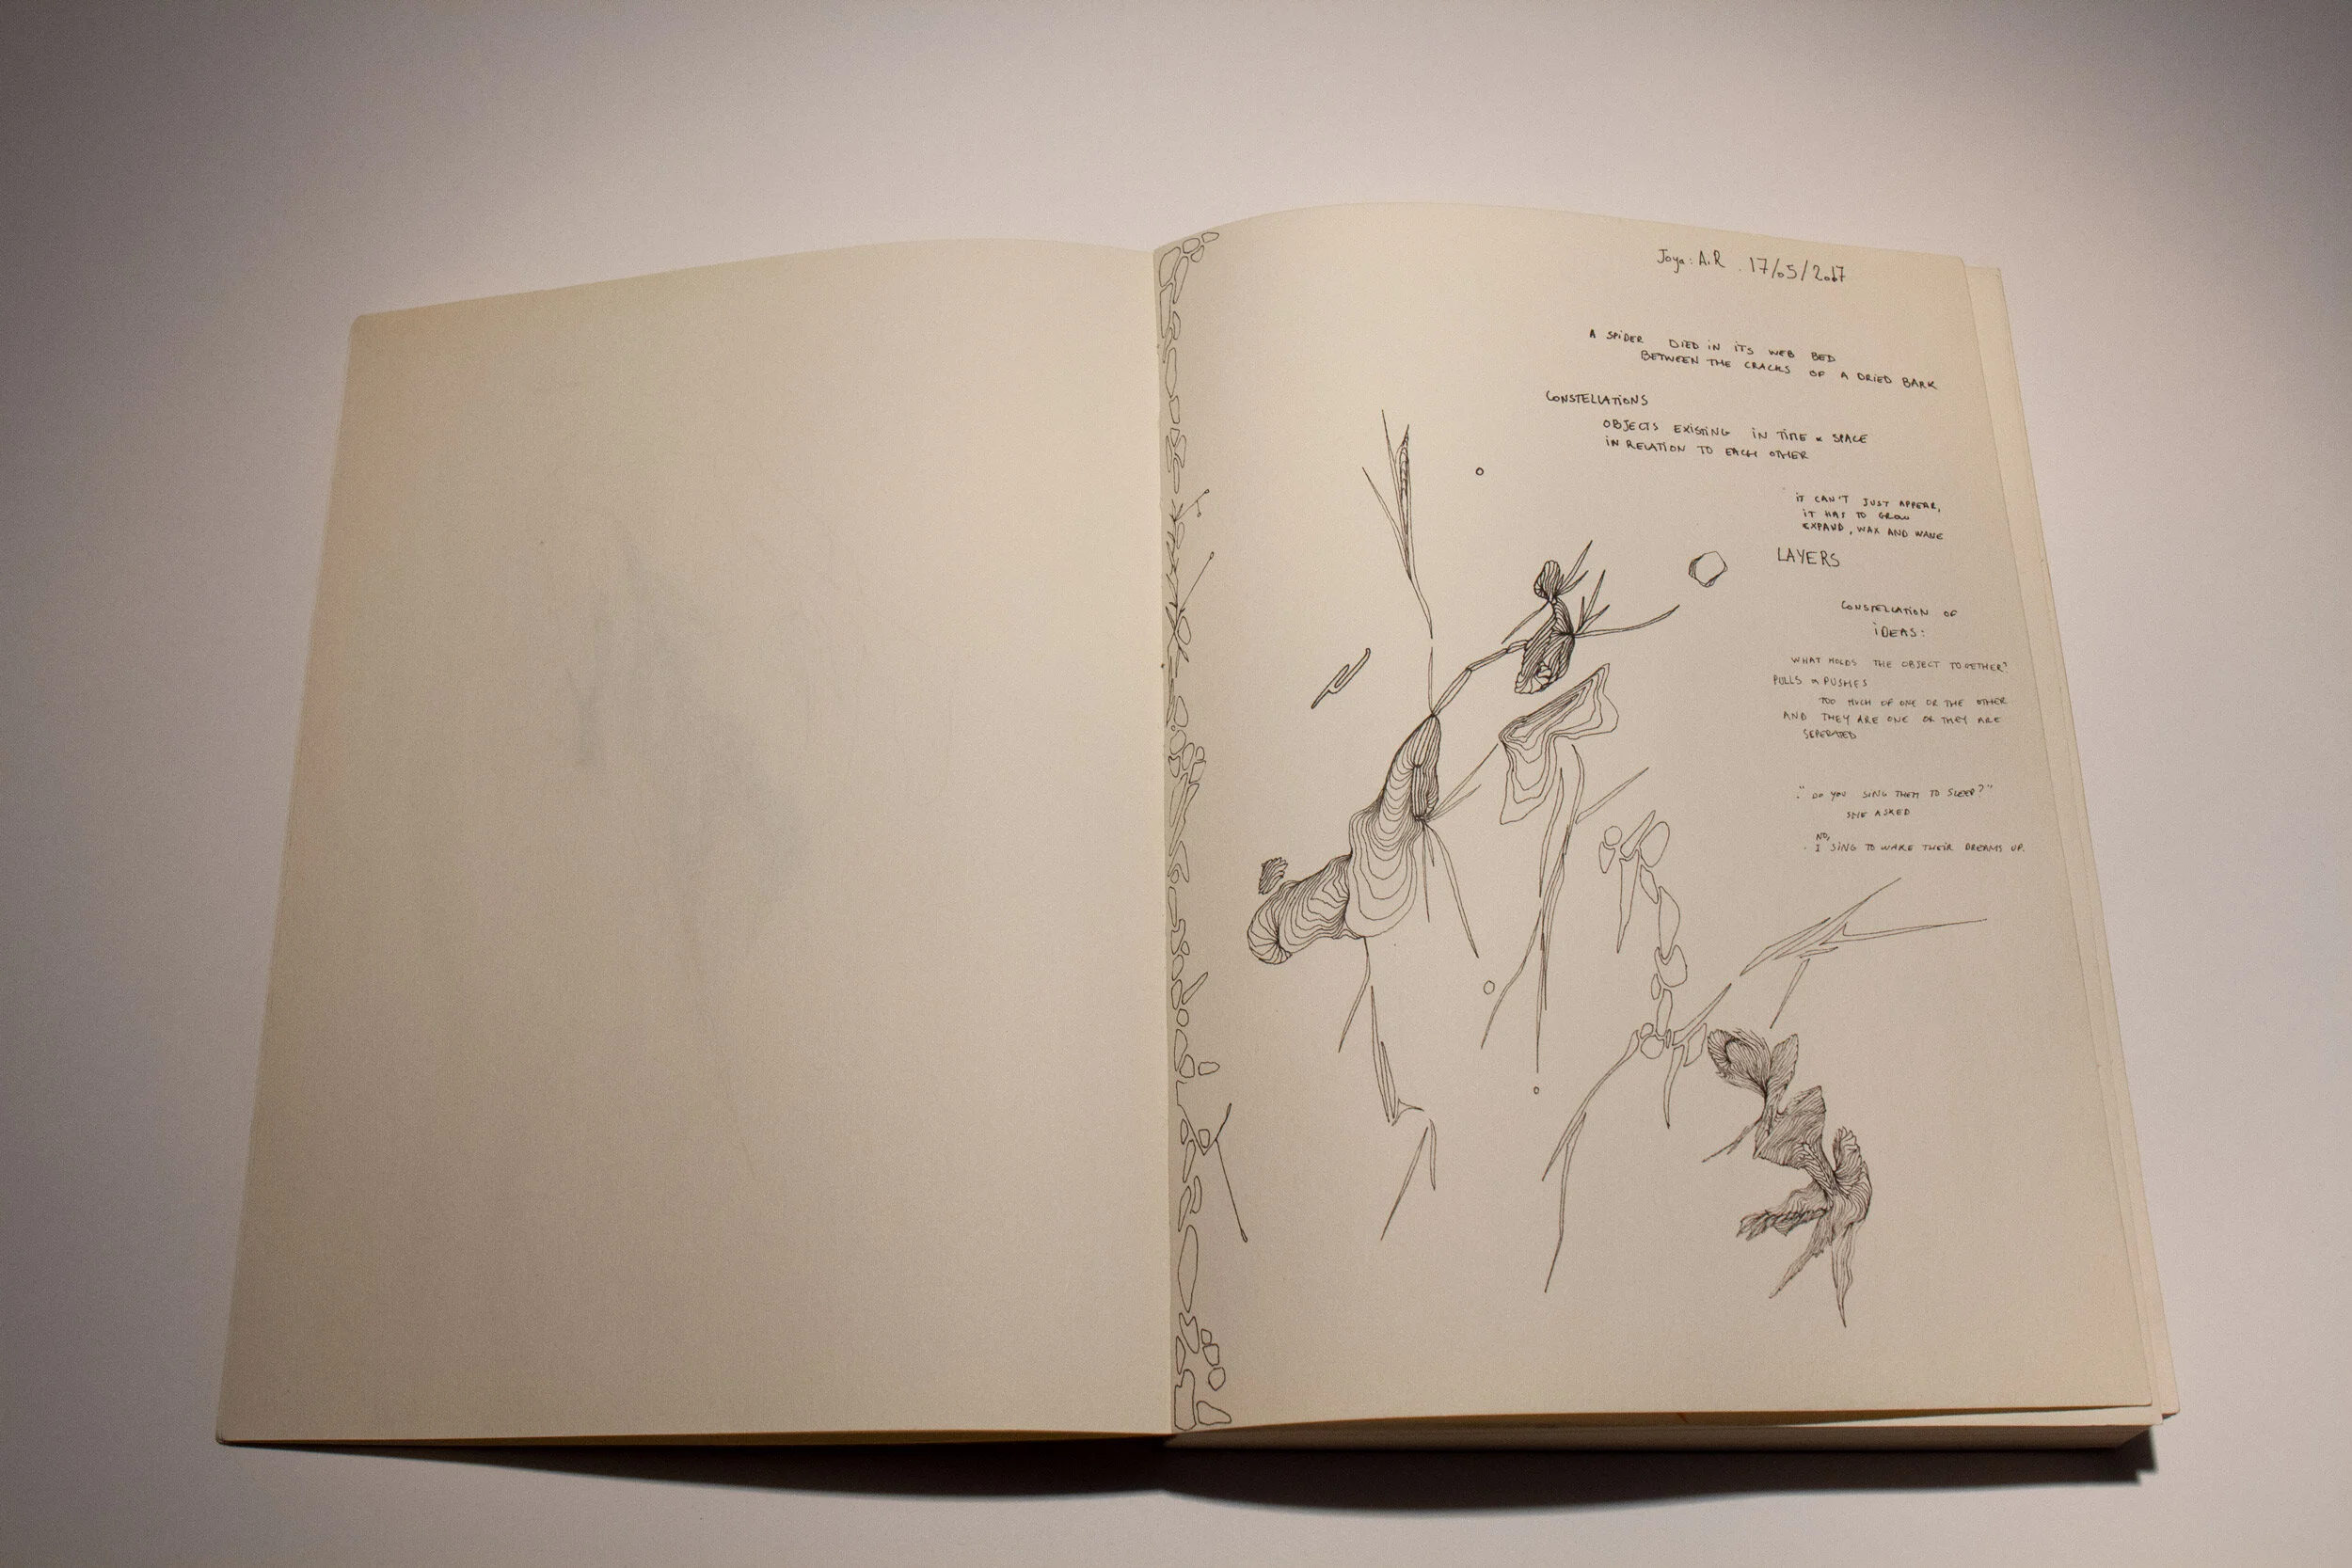 Joya: A.R . 17/05/2017
A SPIDER DIED IN ITS WEB BED
BETWEEN THE CRACKS OF A DRIED BARK
CONSTELLATIONS
OBJECTS EXISTING IN TIME & SPACE
IN RELATION TO EACH OTHER
IT CAN'T JUST APPEAR,
IT HAS TO GROW
EXPAND, WAX AND WANE
LAYERS
CONSTELLATION OF
IDEAS:
WHAT HOLDS THE OBJECT TOGETHER?
PULLS & PUSHES
TOO MUCH OF ONE OR THE OTHER
AND THEY ARE ONE OR THEY ARE
SEPERATED
"DO YOU SING THEM TO SLEEP?"
SHE ASKED
NO,
I SING TO WAKE THEIR DREAMS UP.